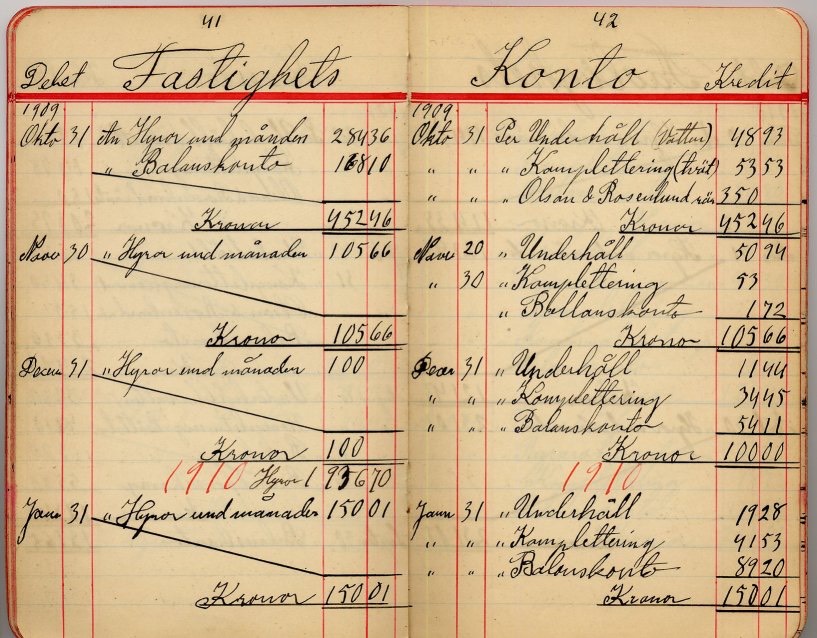 41
Debet Fastighets
1909
Okto 31 An Hyror und månden 284 36
" Balanskonto 168 10
Kronor 452 46
Nove 30 " Hyror und månaden 105 66
Kronor 105 66
Decem 31 " Hyror und månaden 100
Kronor 100
1910 Hyror 1 956 70
Janu 31 " Hyror und månaden 150 01
Kronor 150 01
42
Konto Kredit
1909
Okto 31 Per Underhåll (Vattur) 48 93
" " " Komplettering (tvät) 53 53
" " Olson & Rosenlund rän 350
Kronor 452 46
Nove 20 " Underhåll 50 94
" 30 " Komplettering 53
" Ballanskonto 1 72
Kronor 105 66
Decem 31 " Underhåll 11 44
" " " Komplettering 34 45
" " " Balanskonto 54 11
Kronor 100 00
1910
Janu 31 " Underhåll 19 28
" " " Komplettering 41 53
" " " Balanskonto 89 20
Kronor 150 01